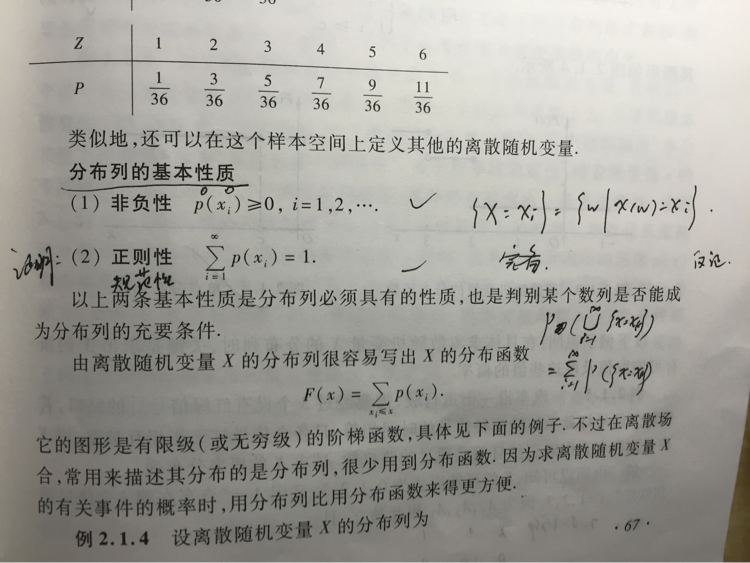 36 36
Z 1 2 3 4 5 6
P 1/36 3/36 5/36 7/36 9/36 11/36
类似地,还可以在这个样本空间上定义其他的离散随机变量.
分布列的基本性质
(1) 非负性 p(xᵢ)≥0, i=1,2,⋯. ✓ {X=xᵢ}={w|X(w)=xᵢ}.
证明: (2) 正则性 ∑_{i=1}^{∞} p(xᵢ)=1. 完备.
规范性
以上两条基本性质是分布列必须具有的性质,也是判别某个数列是否能成
为分布列的充要条件. P(⋃_{i=1}^{∞}{X=xᵢ})
由离散随机变量 X 的分布列很容易写出 X 的分布函数 =∑_{i=1}^{∞}P({X=xᵢ})
F(x)=∑_{xᵢ≤x} p(xᵢ).
它的图形是有限级(或无穷级)的阶梯函数,具体见下面的例子. 不过在离散场
合,常用来描述其分布的是分布列,很少用到分布函数. 因为求离散随机变量 X
的有关事件的概率时,用分布列比用分布函数来得更方便.
例 2.1.4 设离散随机变量 X 的分布列为
·67·